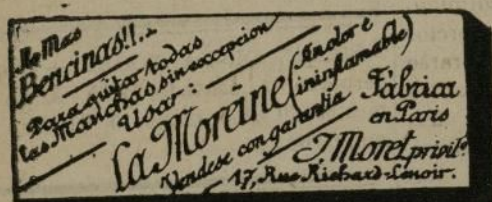 No Mas
Bencinas!!..
Para quitar todas
las Manchas sin excepcion
Usar:
La Moreine (Inolor é
ininflamable)
Vendese con garantia
Fábrica
en Paris
J. Moret privilº
17, Rue Richard-Lenoir.